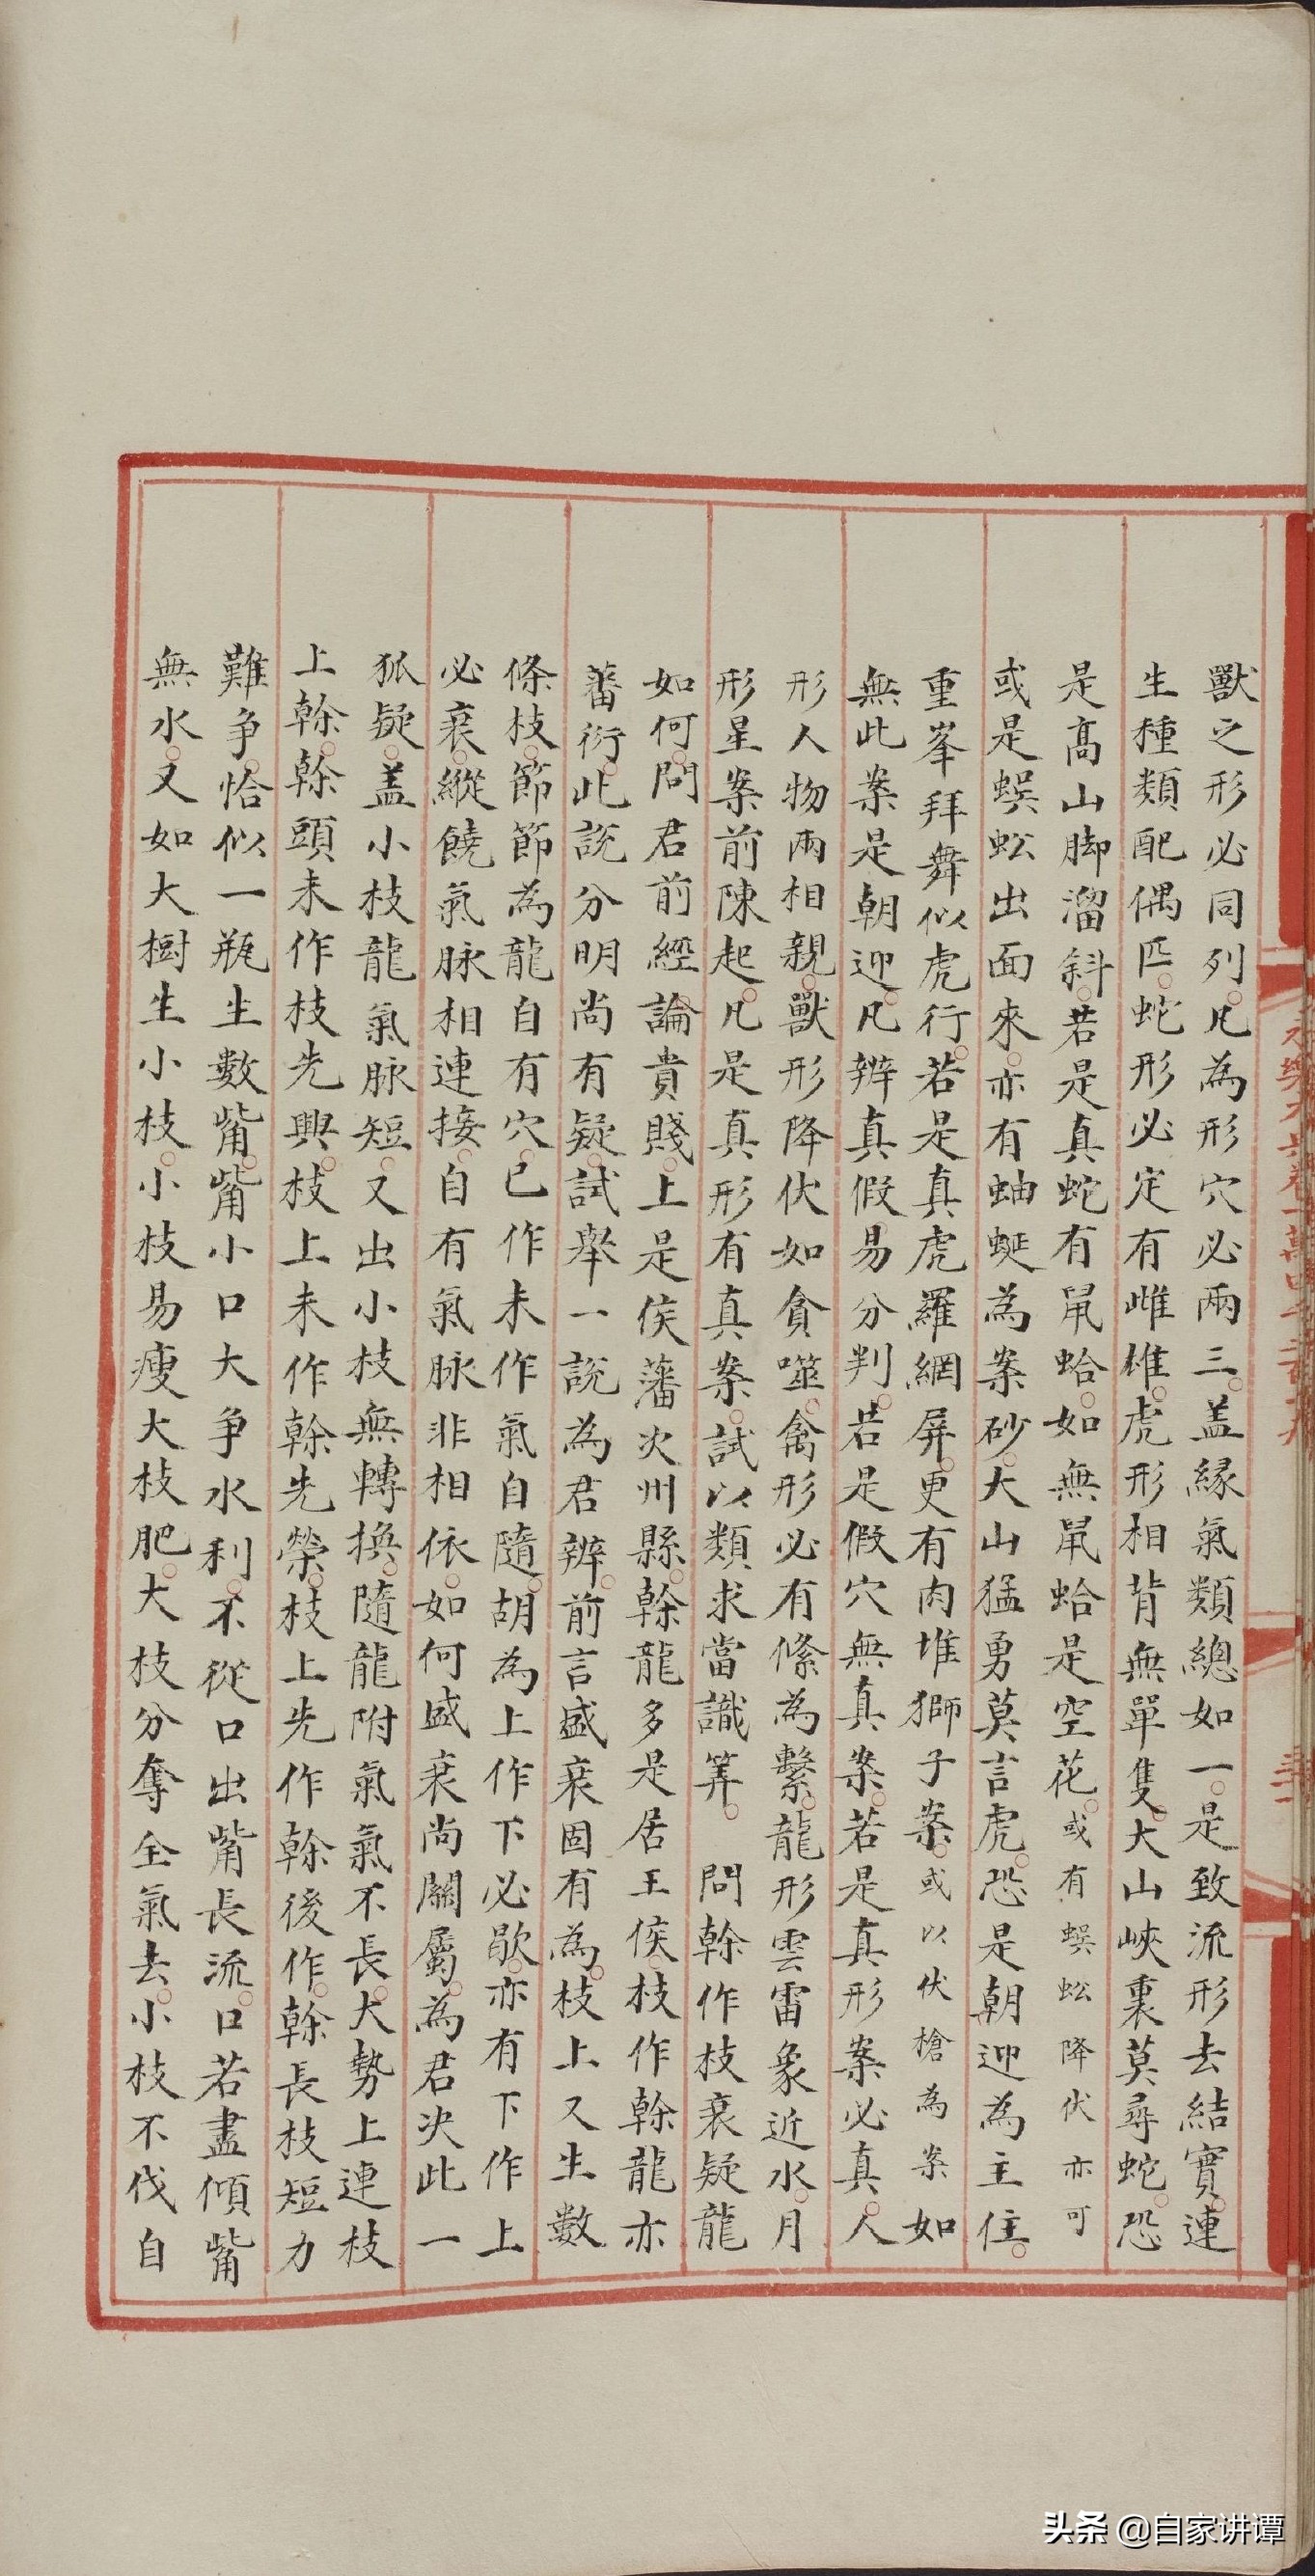 獸之形必同列凡為形穴必兩三盖緣氣類總如一是致流形去結實連
生種類配偶匹蛇形必定有雌雄虎形相背無單隻大山峽裏莫尋蛇恐
是高山脚溜斜若是真蛇有鼠蛤如無鼠蛤是空花或有蜈蚣降伏亦可
或是蜈蚣出面來亦有蚰蜒為案砂大山猛勇莫言虎恐是朝迎為主住
重峯拜舞似虎行若是真虎羅網屏更有肉堆獅子案或以伏槍為案如
無此案是朝迎凡辨真假易分判若是假穴無真案若是真形案必真人
形人物兩相親獸形降伏如貪噬禽形必有絛為繫龍形雲雷象近水月
形星案前陳起凡是真形有真案試以類求當識筭 問幹作枝衰疑龍
如何問君前經論貴賤上是侯藩次州縣幹龍多是居王侯枝作幹龍亦
蕃衍此説分明尚有疑試舉一説為君辨前言盛衰固有為枝上又生數
條枝節節為龍自有穴已作未作氣自隨胡為上作下必歇亦有下作上
必衰縱饒氣脉相連接自有氣脉非相依如何盛衰尚關屬為君决此一
狐疑盖小枝龍氣脉短又出小枝無轉換隨龍附氣氣不長大勢上連枝
上幹幹頭未作枝先興枝上未作幹先榮枝上先作幹後作幹長枝短力
難爭恰似一瓶生數觜觜小口大爭水利不從口出觜長流口若盡傾觜
無水又如大樹生小枝小枝易瘦大枝肥大枝分奪全氣去小枝不伐自
頭条 @自家讲谭